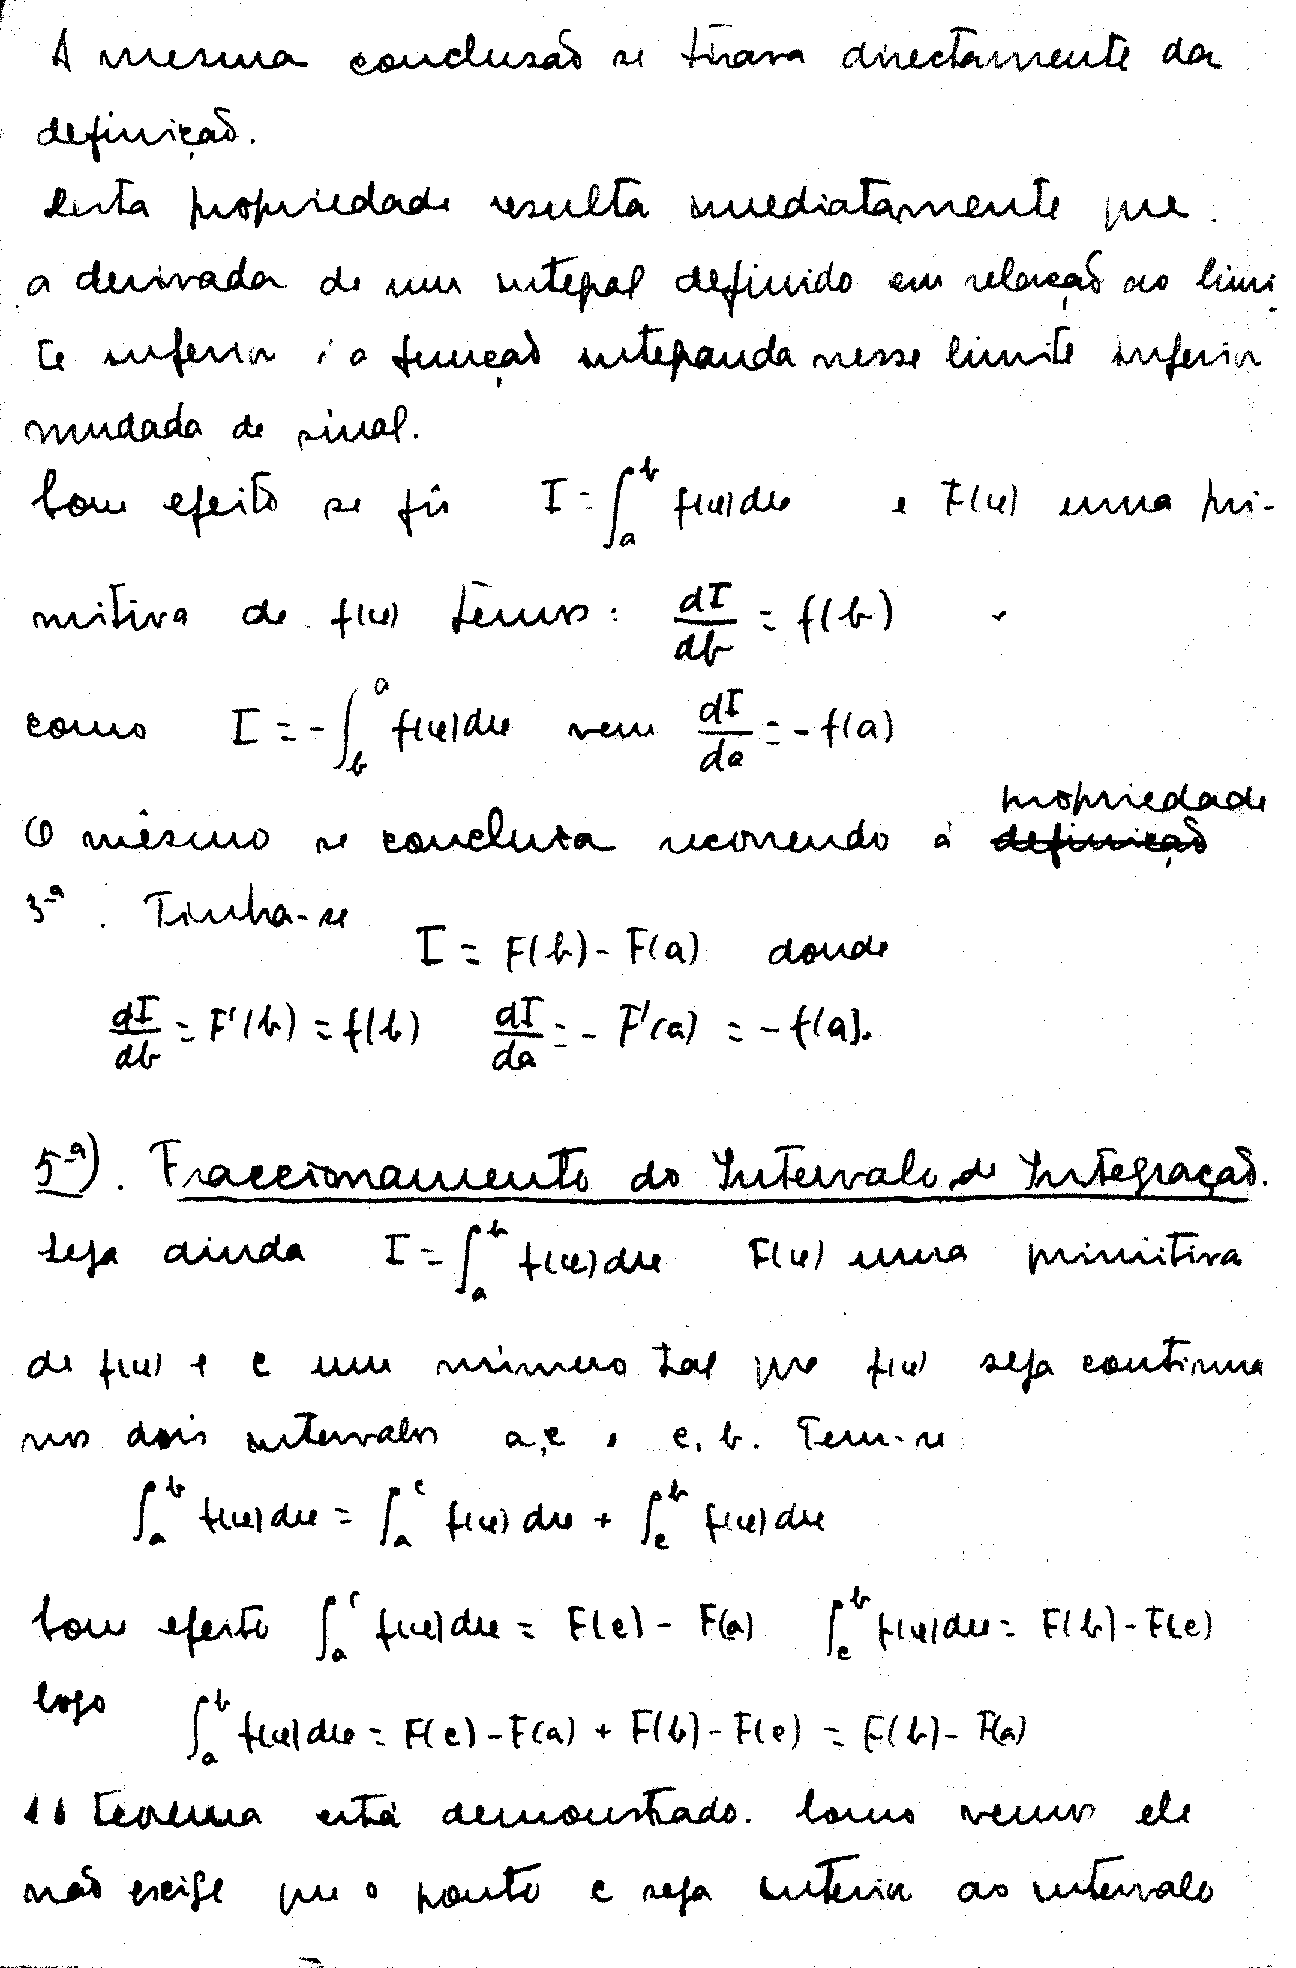 A mesma conclusão se tirava directamente da
definição.
Desta propriedade resulta imediatamente que
a derivada de um integral definido em relação ao limi
te inferior é a função integranda nesse limite inferior
mudada de sinal.
Com efeito se fôr I = ∫_a^b f(x)dx e F(x) uma pri-
mitiva de f(x) temos: dI/db = f(b)
como I = -∫_b^a f(x)dx vem dI/da = -f(a)
propriedade
O mesmo se concluia recorrendo à definição
3ª. Tinha-se
I = F(b) - F(a) donde
dI/db = F'(b) = f(b) dI/da = - F'(a) = -f(a).
5ª). Fraccionamento do Intervalo de Integração.
Seja ainda I = ∫_a^b f(x)dx F(x) uma primitiva
de f(x) e c um número tal que f(x) seja continua
nos dois intervalos a,c e c,b. Tem-se
∫_a^b f(x)dx = ∫_a^c f(x)dx + ∫_c^b f(x)dx
Com efeito ∫_a^c f(x)dx = F(c) - F(a) ∫_c^b f(x)dx = F(b) - F(c)
logo ∫_a^b f(x)dx = F(c) - F(a) + F(b) - F(c) = F(b) - F(a)
teorema está demonstrado. Como vemos ele
não exige que o ponto c seja interior ao intervalo